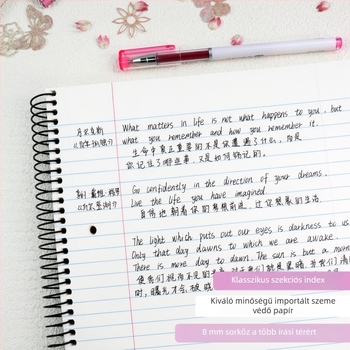 马尔克斯
《百年孤独》
What matters in life is not what happens to you but
what you remember and how you remember it.
生命中真正重要的不是你遭遇了什么，而是
你记住了哪些事，又是如何铭记的。
《瓦尔登湖》
Go confidently in the direction of your dreams.
Live the life you have imagined.
自信地朝着你的梦想前进，过你想要的生活。
The light which puts out our eyes is darkness to us
Only that day dawns to which we are awake.
There is more day to dawn. The sun is but a morn
使我们视而不见的
时，曙光才会破
Klasszikus szekciós index
Kiváló minőségű importált szeme
védő papír
8 mm sorköz a több írási térért